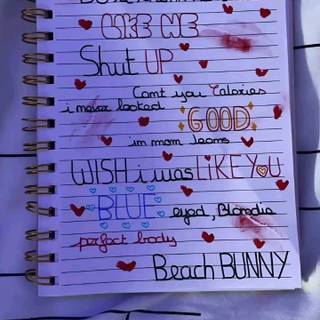 LIKE ME
Shut UP
Comt you Calories
i never looked
GOOD
im mom Jeans
WISH i was LIKE YOU
BLUE eyed, Blondie
perfect body
Beach BUNNY